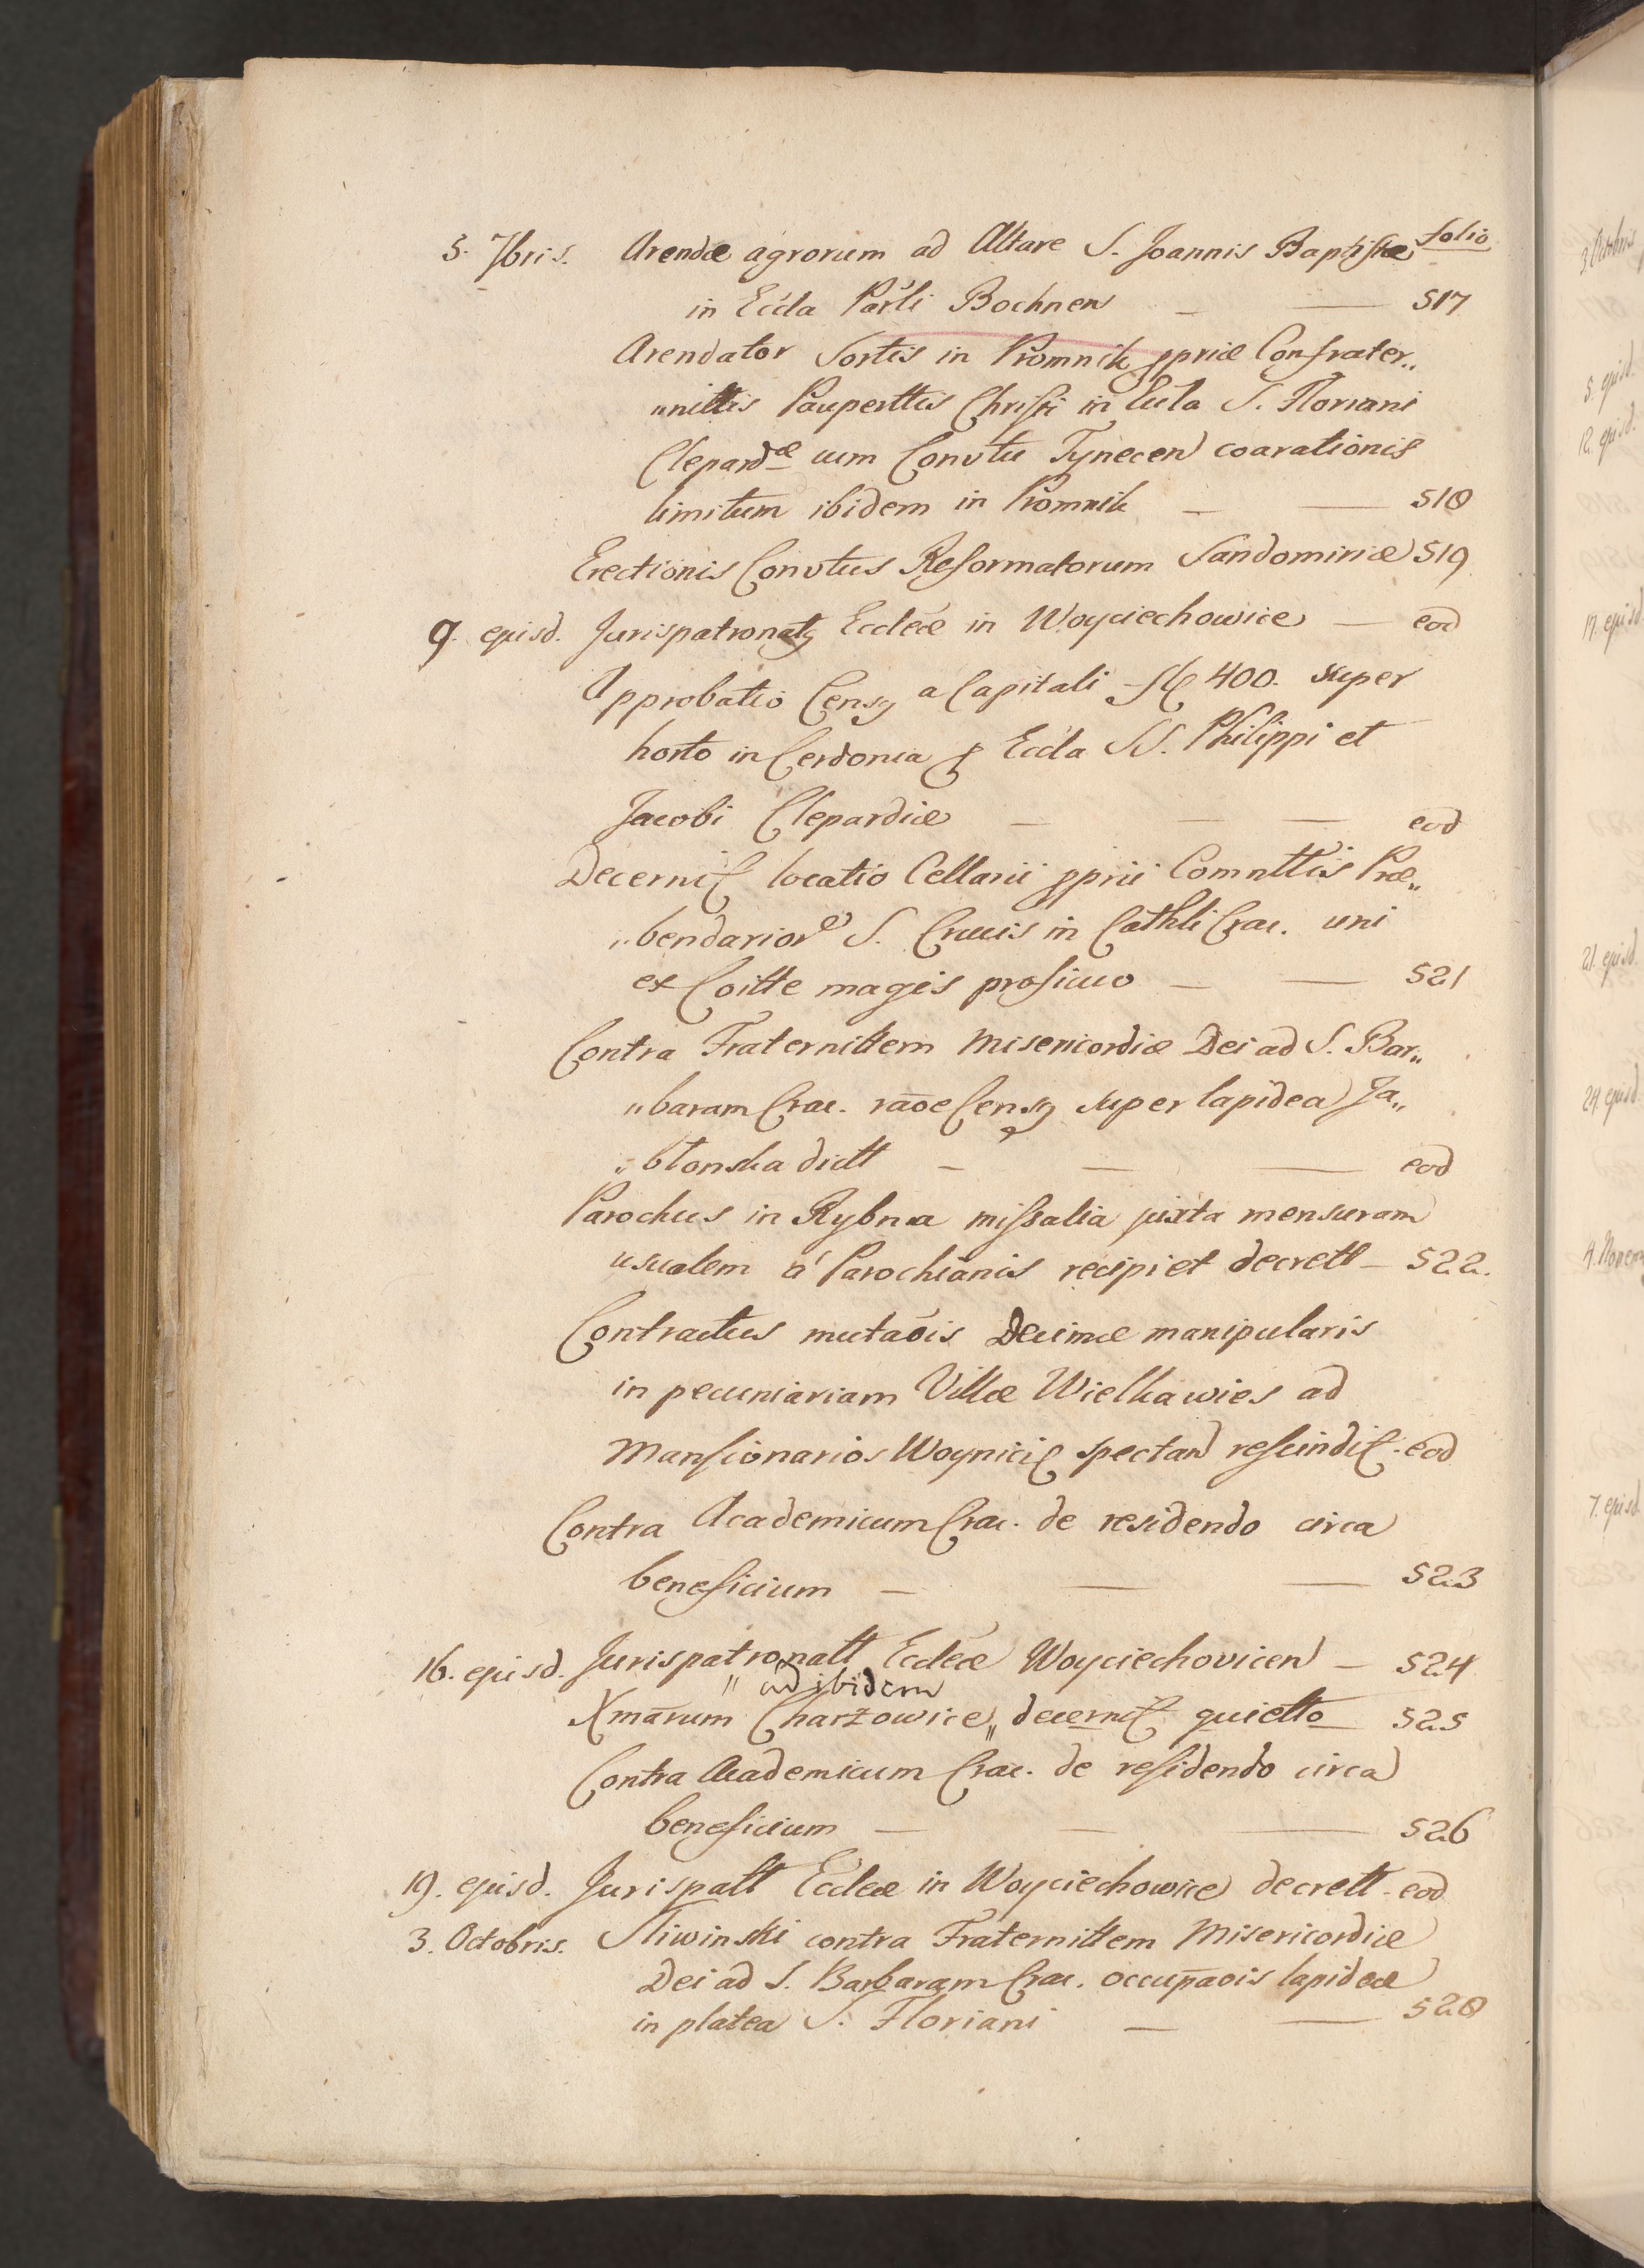 folio
5. 7bris. Arendæ agrorum ad Altare S. Joannis Baptistæ
in Eccla Parli Bochnen — — 517
Arendator Sortis in Promnik ppriæ Confrater„
„nittis Pauperttis Christi in Eccla S. Floriani
Clepardæ cum Convtu Tynecen coarationis
limitum ibidem in Promnik — — 518
Erectionis Convtus Reformatorum Sandomiriæ 519
9. ejusd. Jurispatronatg Eccleæ in Woyciechowice — eod
Approbatio Censg a Capitali fl 400. super
horto in Cerdonia p Eccla SS. Philippi et
Jacobi Clepardiæ — — — eod
Decernit locatio Cellarii pprii Comnttis Præ„
„bendarior S. Crucis in Cathli Crac. uni
ex Coitte magis proficuo — — 521
Contra Fraternittem Misericordiæ Dei ad S. Bar„
„baram Crac. raōe Censg super lapidea Ja„
„błonska dictt — — — eod
Parochus in Rybna missalia juxta mensuram
usualem á Parochianis recipiet decrett — 522.
Contractus mutaōis Decimæ manipularis
in pecuniariam Villæ Wielkawies ad
Mansionarios Woynicić spectan rescindit. eod
Contra Academicum Crac. de residendo circa
beneficium — — — 523
16. ejusd. Jurispatronatt Eccleæ Woyciechovicen — 524
„ ad ibidem
Xmārum Charzowice„ decernit quietto 525
Contra Academicum Crac. de residendo circa
beneficium — — — 526
19. ejusd. Jurispatt Eccleæ in Woyciechowice decrett - eod
3. Octobris. Sliwinski contra Fraternittem Misericordiæ
Dei ad S. Barbaram Crac. occupaōis lapideæ
in platea S. Floriani — — 528
3. Octobris
5. ejusd.
12. ejusd.
17. ejusd.
21. ejusd.
24. ejusd.
7. ejusd.